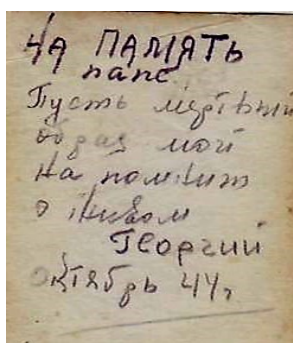 НА ПАМЯТЬ
папе
Пусть мертвый
образ мой
на помнит
о живом
Георгий
октябрь 44г